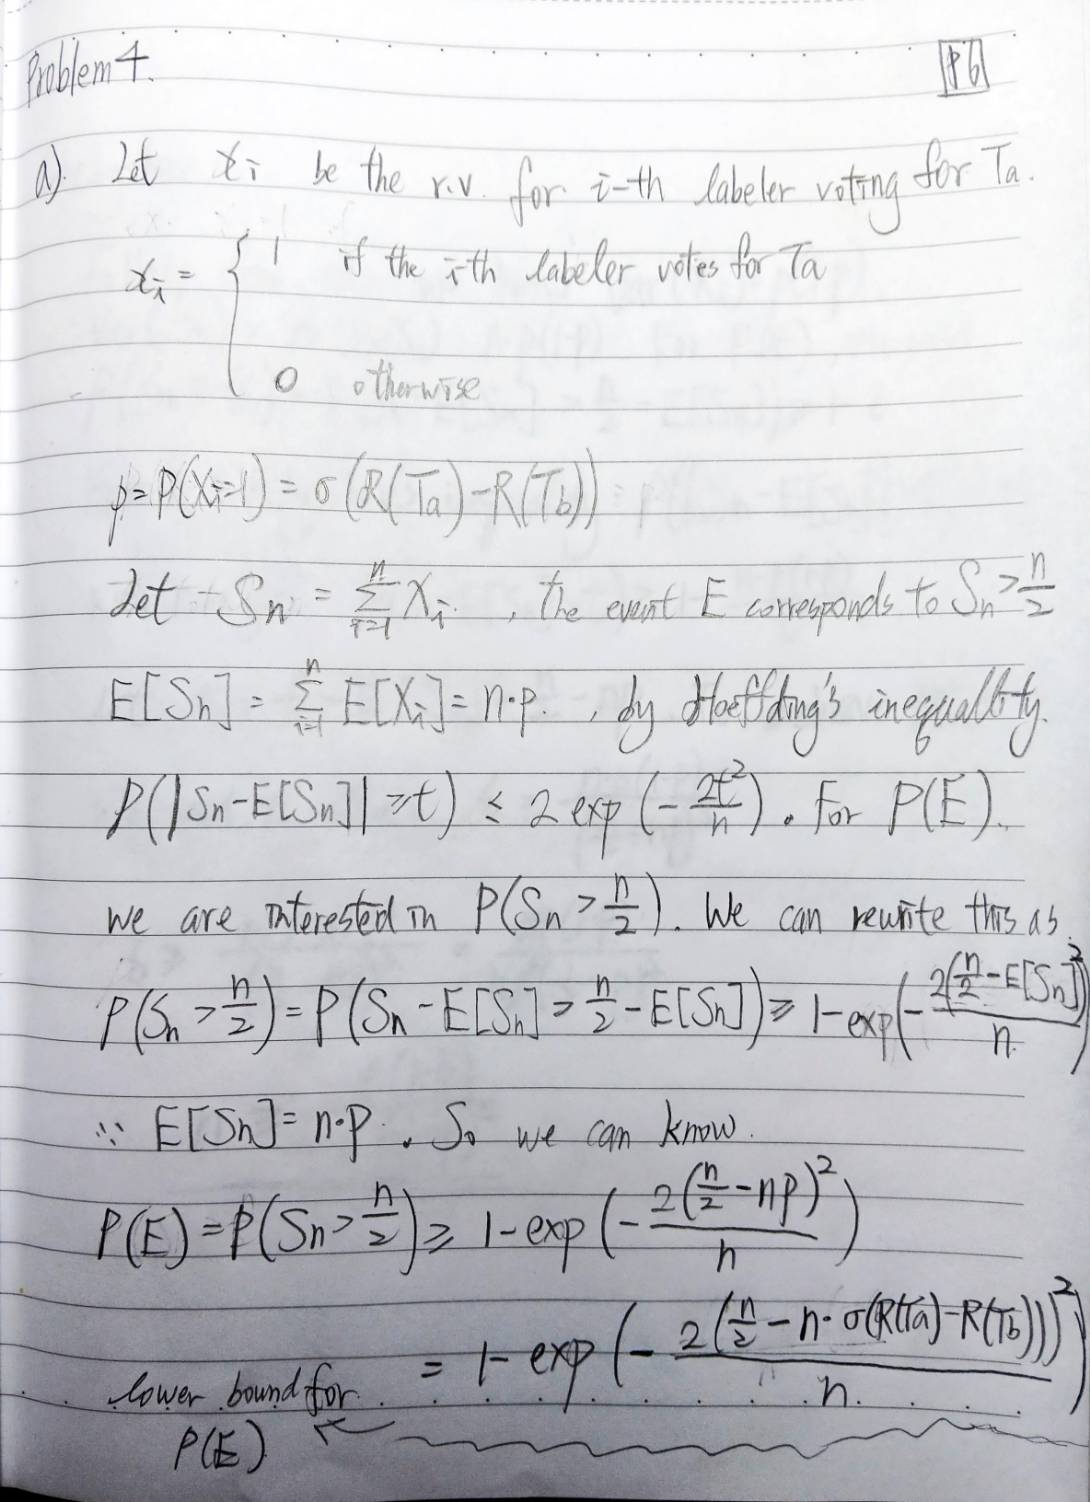 Problem 4.
P6
a). Let xi be the r.v. for i-th labeler voting for Ta.
xi = { 1 if the i-th labeler votes for Ta
0 otherwise
p = P(Xi=1) = σ(R(Ta)-R(Tb))
Let Sn = Σ_{i=1}^{n} Xi. , the event E corresponds to Sn > n/2
E[Sn] = Σ_{i=1}^{n} E[Xi] = n·p. , by Hoeffding's inequality.
P(|Sn - E[Sn]| ≥ t) ≤ 2 exp(- 2t²/n). For P(E).
we are interested in P(Sn > n/2). We can rewrite this as.
P(Sn > n/2) = P(Sn - E[Sn] > n/2 - E[Sn]) ≥ 1-exp(- 2(n/2 - E[Sn])²/n.)
∵ E[Sn] = n·p. So we can know.
P(E) = P(Sn > n/2) ≥ 1-exp(- 2(n/2 - np)²/n)
= 1- exp(- 2(n/2 - n·σ(R(Ta)-R(Tb)))²/n.)
lower bound for
P(E)